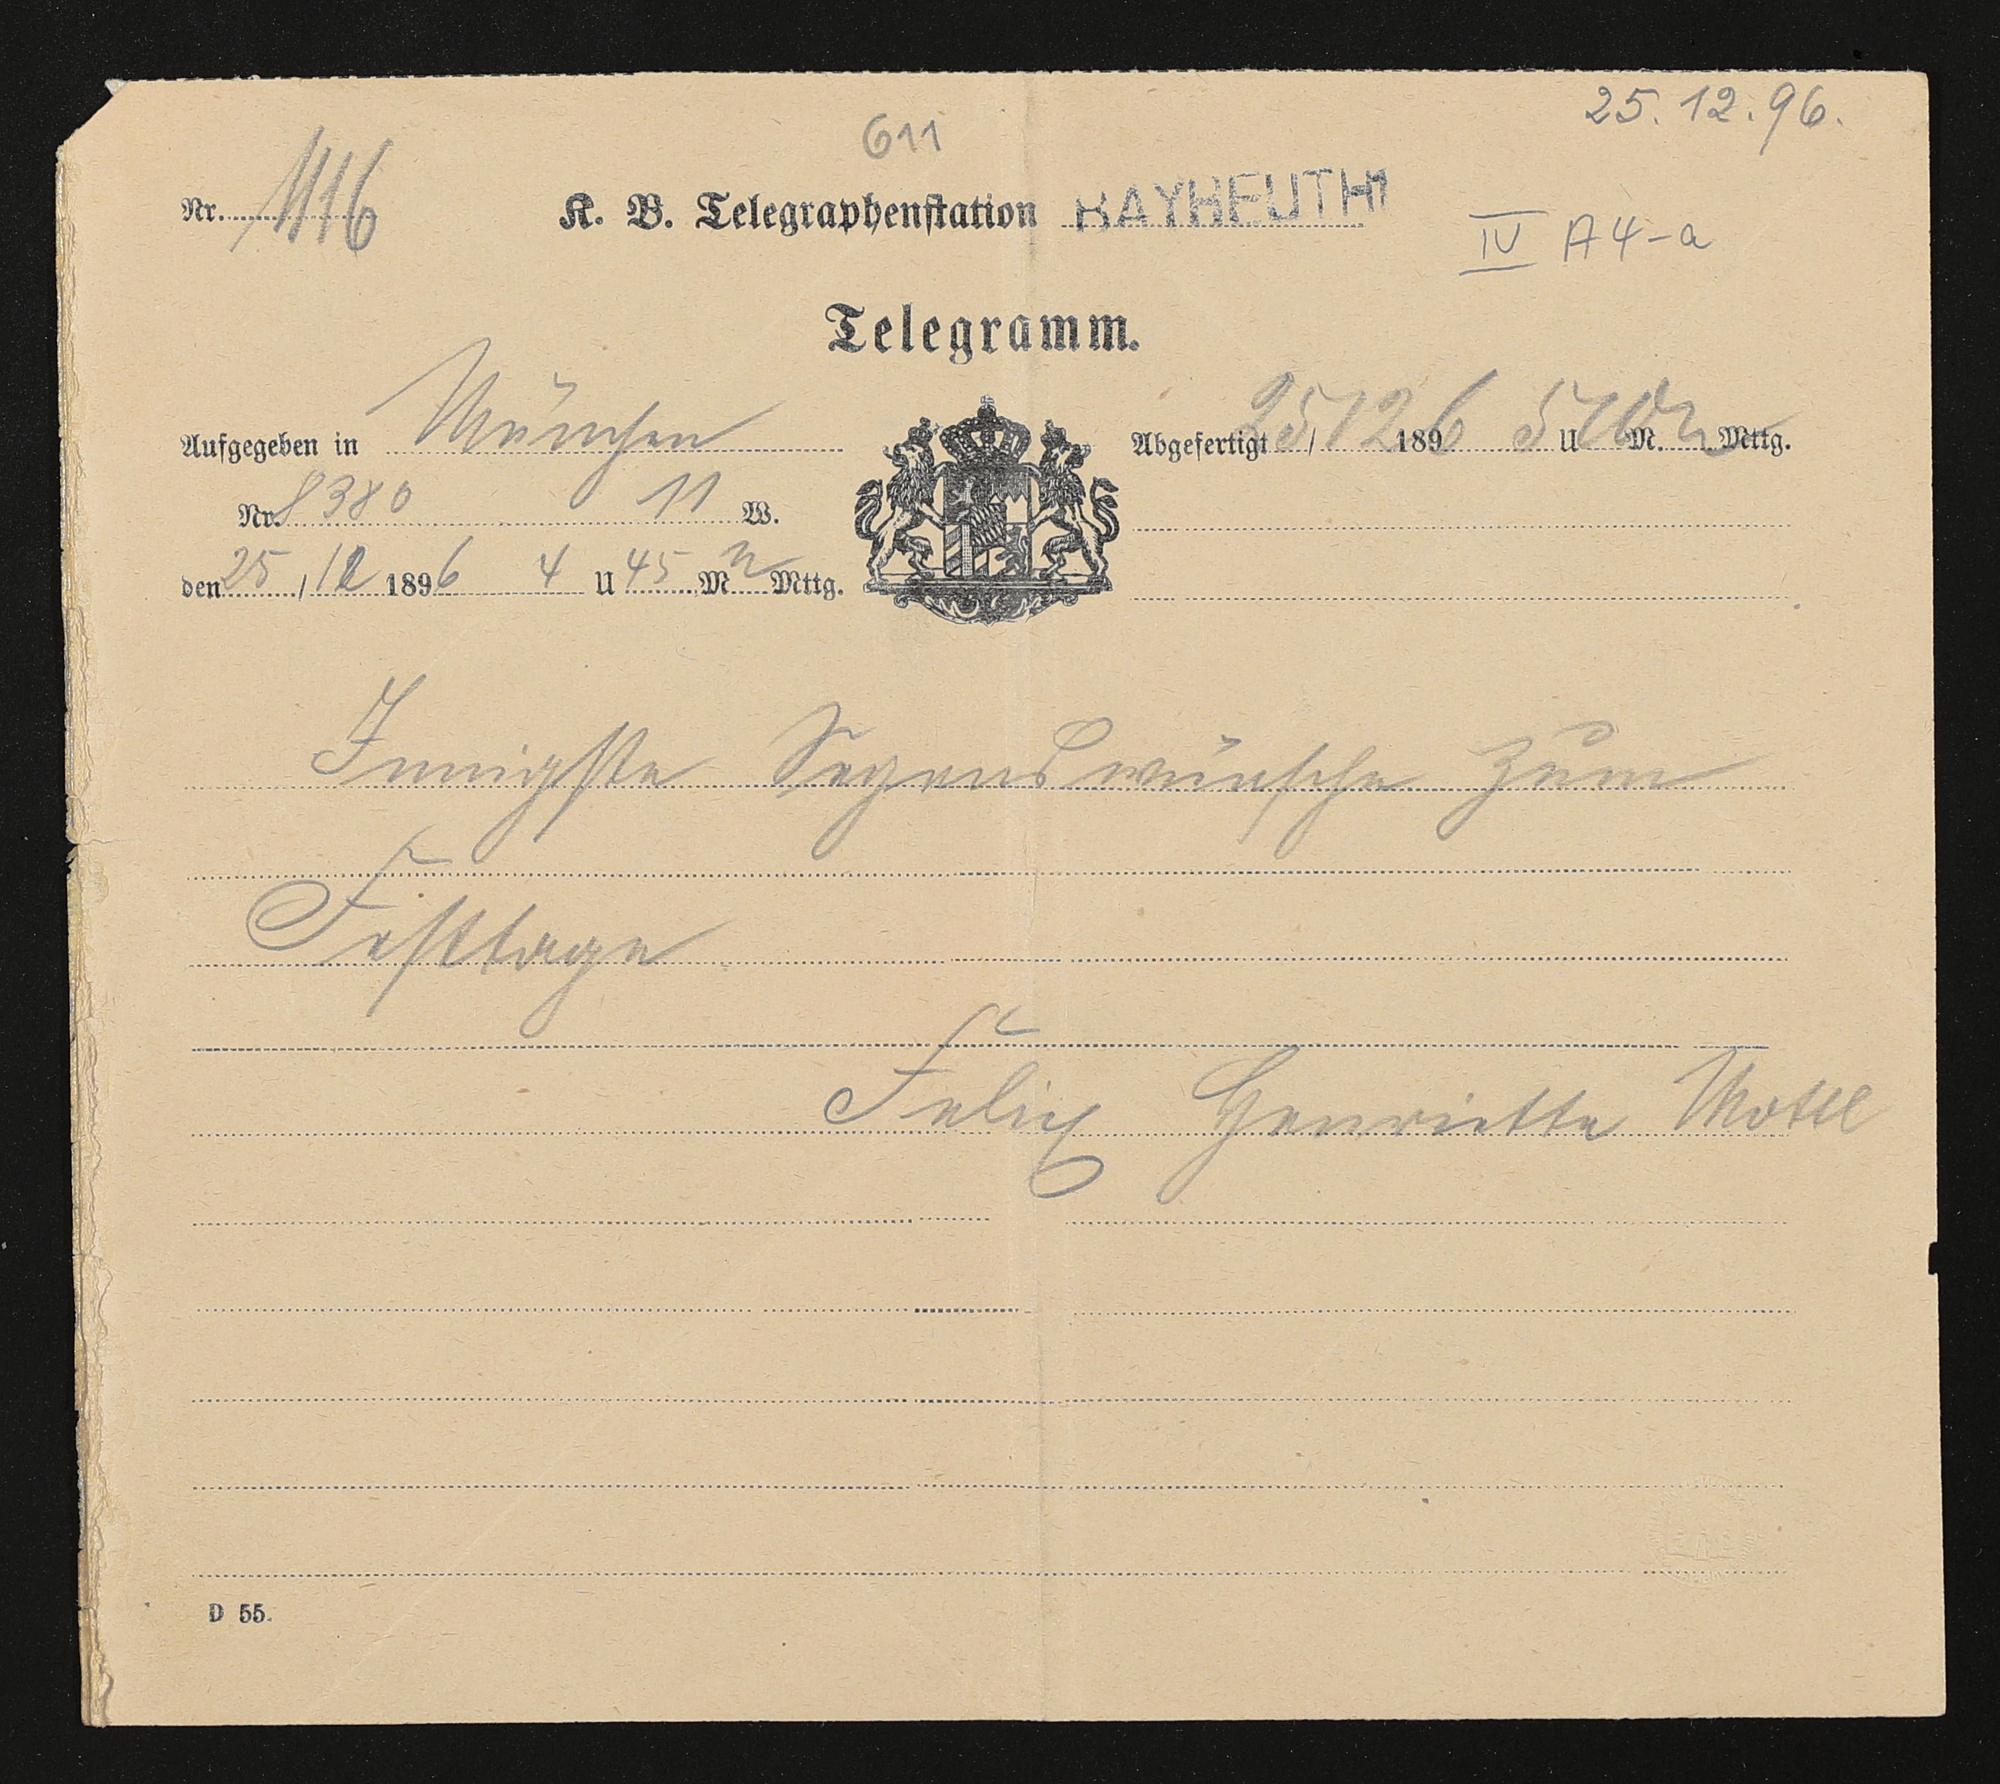 25. 12. 96.
611
Nr. 1116 K. B. Telegraphenstation BAYREUTH 1
IV A 4-a
Telegramm.
Aufgegeben in München
Abgefertigt 25/12 1896 5 U 10 M. n Mttg.
Nr. 8380 11 W.
den 25/12 1896 4 U 45 M n Mttg.
Innigste Segenswünsche zum
Festtage
Felix Henriette Mottl
D 55.